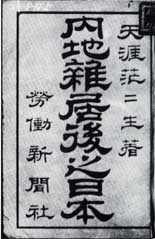 天涯茫々生著
内地雜居後之日本
勞働新聞社